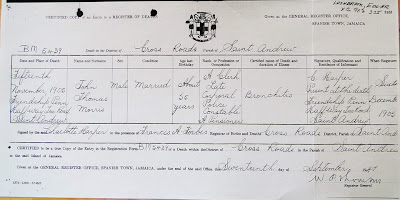 CERTIFIED COPY of an Entry in a REGISTER OF DEATHS
Given at the GENERAL REGISTER OFFICE,
SPANISH TOWN, JAMAICA.
BM 5439
Death in the District of Cross Roads Parish of Saint Andrew
Date and Place of Death Name and Surname Sex Condition Age last Birthday Rank, or Profession or Occupation Certified cause of Death and duration of illness Signature, Qualification and Residence of Informant When Registered
Fifteenth
November 1902
Friendship Penn
Halfway Tree Road
Saint Andrew
John
Thomas
Morris
Male
Married
About
50
years
A Clerk
Late
Corporal
Police
Constable
A Pensioner
Bronchitis
C Harper
Present at the death
Friendship Penn
Halfway Tree Road
Saint Andrew
December
1902
Signed by the said Charlotte Harper in the presence of Francis A Forbes Registrar of Births and Deaths Cross Roads Parish of Saint Andrew
CERTIFIED to be a true Copy of the Entry in the Registration Form BM5439 of a Death within the District of Cross Roads in the Parish of Saint Andrew
in the said Island of Jamaica.
Given at the GENERAL REGISTER OFFICE, SPANISH TOWN, JAMAICA, under the Seal of the said Office the Seventeenth day of September
Registrar General